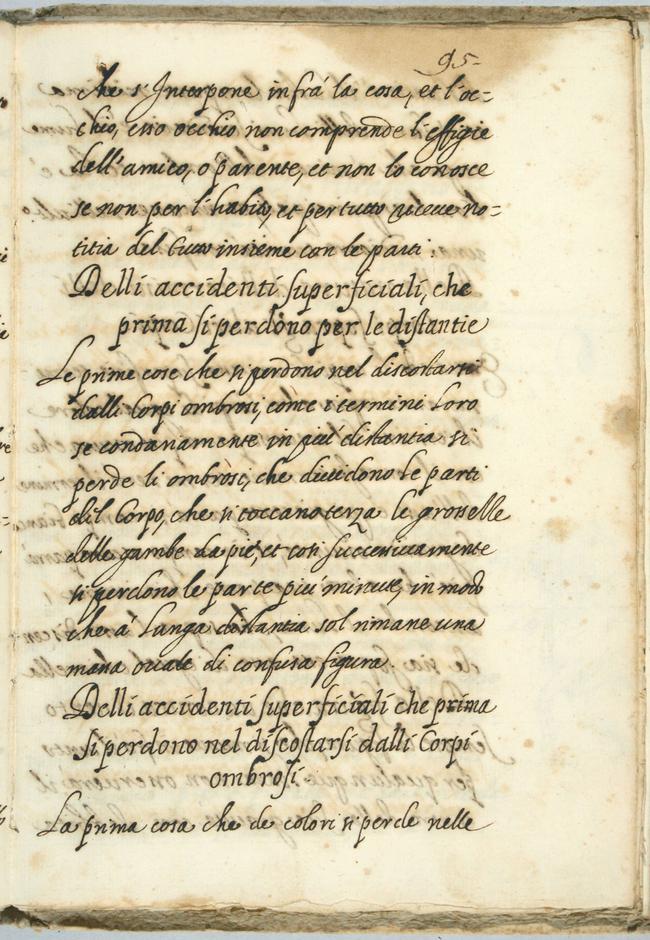 95-
che s'Interpone infrà la cosa, et l'oc=
chio, esso occhio non comprende l'effigie
dell'amico, o parente, et non lo conosce
se non per l'habito, et per tutto riceve no=
titia del tutto insieme con le parti.
Delli accidenti superficiali, che
prima si perdono per le distantie
Le prime cose che si perdono nel discostarsi
dalli Corpi ombrosi, come i termini loro
secondariamente in più distantia si
perde li ombrosi, che dividono le parti
dil Corpo, che si toccano terza le grosselle
delle gambe da pie, et così successivamente
si perdono le parte più minute, in modo
che à lunga distantia sol rimane una
massa ovale di confusa figura.
Delli accidenti superficiali che prima
si perdono nel discostarsi dalli Corpi
ombrosi
La prima cosa che de colori si perde nelle